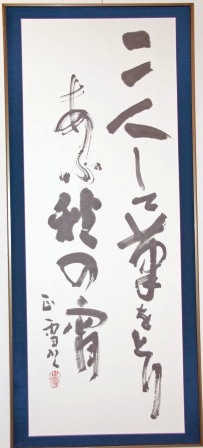 二人して筆をとり
あふ秋の宵